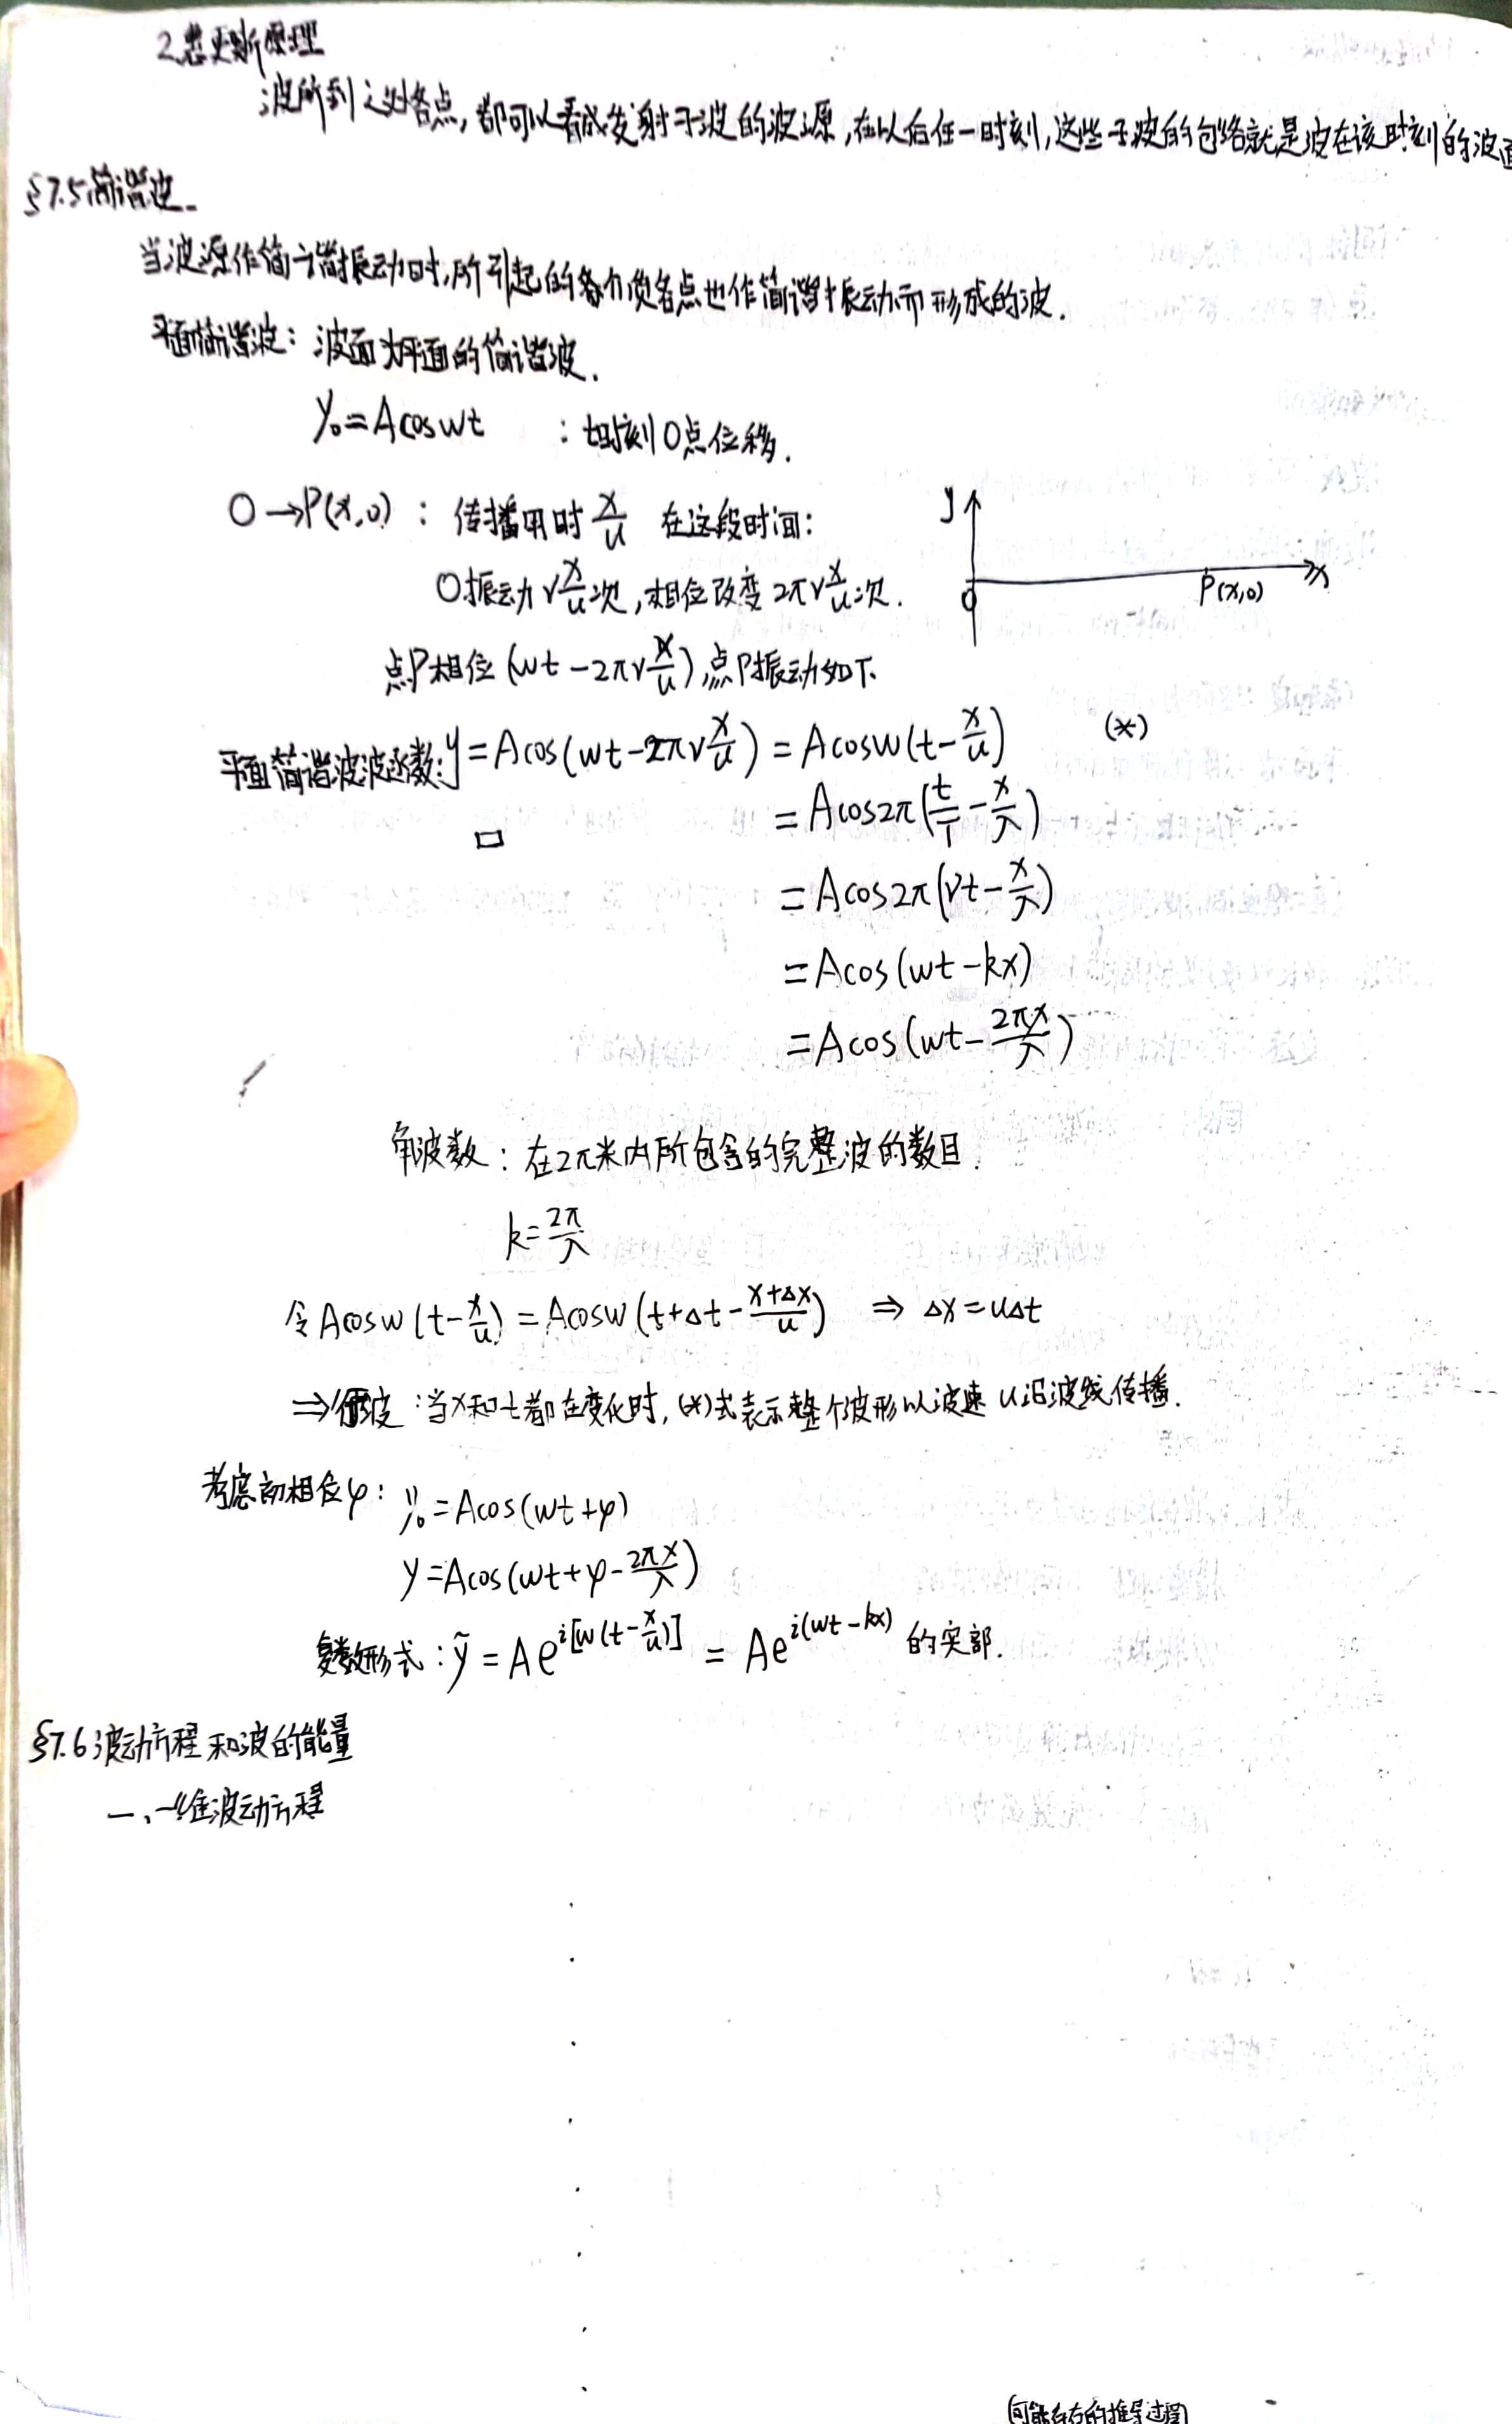 2.惠更斯原理
波所到之处各点,都可以看成发射子波的波源,在以后任一时刻,这些子波的包络就是波在该时刻的波面
§7.5简谐波
当波源作简谐振动时,所引起的各介质各点也作简谐振动而形成的波.
平面简谐波: 波面为平面的简谐波.
y₀=Acoswt : t时刻O点位移.
O→P(x,0) : 传播用时 x/u 在这段时间:
O振动 ν x/u 次,相位改变 2πν x/u 次.
y
O
P(x,0)
x
点P相位 (wt-2πν x/u),点P振动如下
平面简谐波波函数: y=Acos(wt-2πν x/u) = Acosw(t-x/u) (*)
=Acos2π(t/T-x/λ)
=Acos2π(νt-x/λ)
=Acos(wt-kx)
=Acos(wt-2πx/λ)
角波数: 在2π米内所包含的完整波的数目.
k=2π/λ
令Acosw(t-x/u)=Acosw(t+Δt-(x+Δx)/u) ⇒ Δx=uΔt
⇒波 :当x和t都在变化时,(*)式表示整个波形以波速u沿波线传播.
考虑初相位φ: y₀=Acos(wt+φ)
y=Acos(wt+φ-2πx/λ)
复数形式: ỹ=Ae^{i[w(t-x/u)]} = Ae^{i(wt-kx)} 的实部.
§7.6波动方程和波的能量
一、一维波动方程